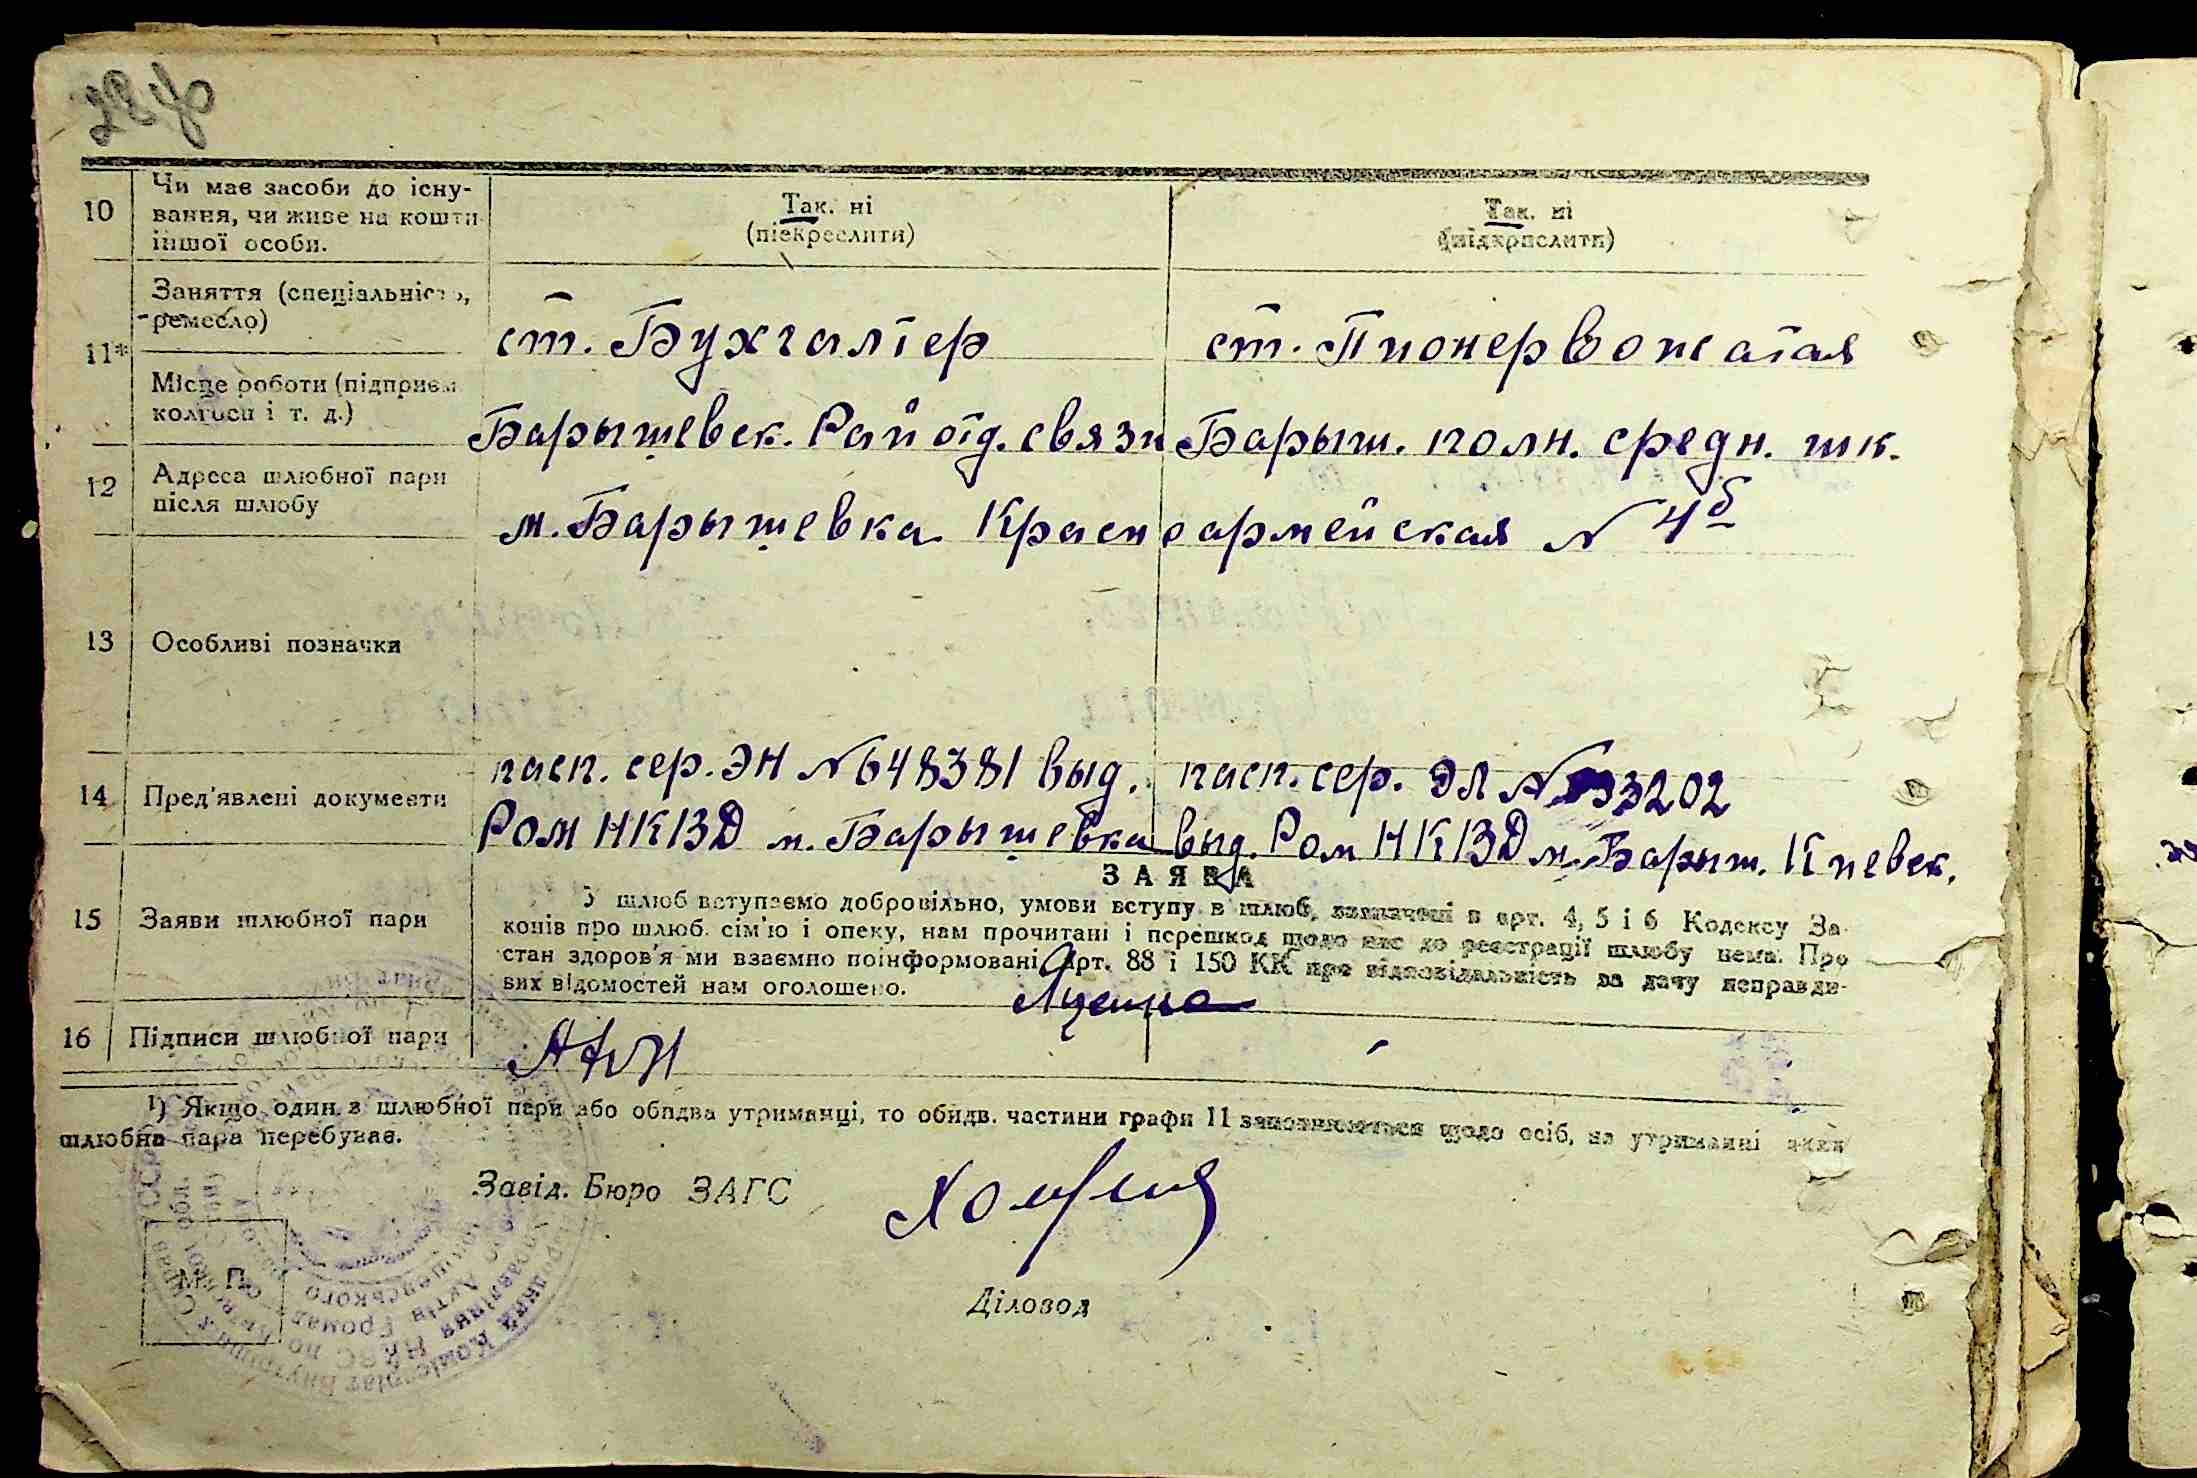 10 Чи має засоби до існу-
вання, чи живе на кошти
іншої особи.
Так. ні
(підкреслити)
Так. ні
(підкреслити)
11* Заняття (спеціальність,
ремесло)
ст. Бухгалтер
ст. Пионервожатая
Місце роботи (підприєм
колгосп і т. д.)
Барышевск. Райотд. связи
Барыш. полн. средн. шк.
12 Адреса шлюбної пари
після шлюбу
м. Барышевка Красноармейская № 4б
13 Особливі позначки
14 Пред'явлені документи
пасп. сер. ЭН № 648381 выд.
Ром НКВД м. Барышевка
пасп. сер. ЭЛ № 33202
выд. Ром НКВД м. Барыш. Киевск.
15 Заяви шлюбної пари
ЗАЯВА
У шлюб вступаємо добровільно, умови вступу в шлюб, зазначені в арт. 4, 5 і 6 Кодексу За-
конів про шлюб. сім'ю і опеку, нам прочитані і перешкод щодо нас до реєстрації шлюбу нема. Про
стан здоров'я ми взаємно поінформовані. Арт. 88 і 150 КК про відповідальність за дачу неправди-
вих відомостей нам оголошено.
16 Підписи шлюбної пари
¹) Якщо один з шлюбної пари або обидва утриманці, то обидв. частини графи 11 заповнюються щодо осіб, на утриманні яких
шлюбна пара перебуває.
Завід. Бюро ЗАГС
М. П.
Діловод